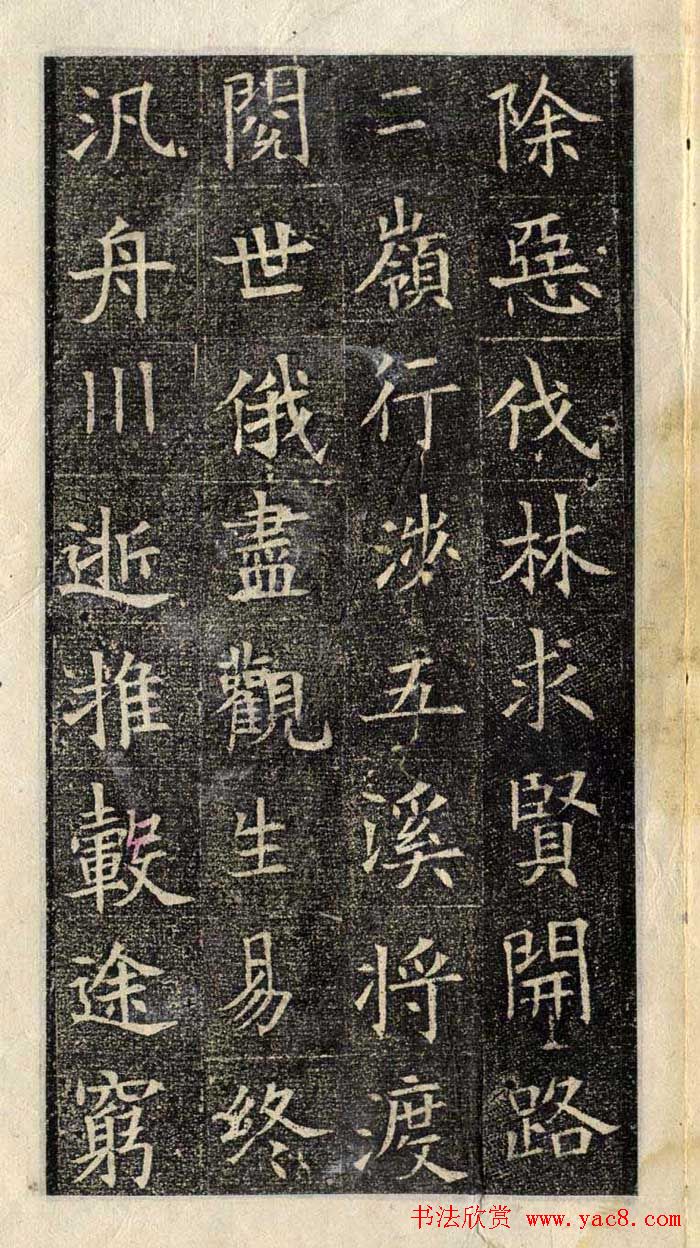 除惡伐林求賢開路
二嶺行涉五溪将渡
閱世俄盡觀生易終
汎舟川逝推轂途窮
书法欣赏 www.yac8.com